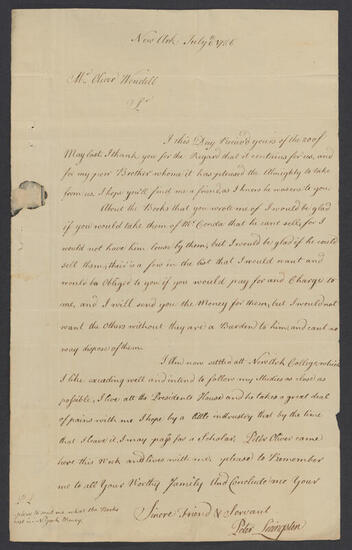 New Ark July 1756
Mr. Oliver Wendell
Sr.
I this Day Receiv'd yours of the 20 of
May last, I thank you for the Regard that it contains for us, and
for my poor Brother whome it has pleased the Almighty to take
form us. I hope you'll find me a friend, as I know he was ever to you.
About the Books that you wrote me of I would be glad
if you would take them of Mr. Conda that he cant sell, for I
would not have him loose by them, but I would be glad if he could
sell them, thair's a few in the list that I would want and
would be Obliged to you if you would pay for and Charge to
me, and I will send you the Money for them, but I would not
want the Others without they are a Burden to him, and cant no
way dispose of them.
I Am now settled att New Ark College, which
I like exceeding well and intend to follow my studies as close as
possible, I live att the Presidents House and he takes a great deal
of pains with me I hope by a little industrey that by the time
that I leave it, I may pass for a Scholar, Peter Oliver came
here this Week and lives with me, please to Remember
me to all Your Worthy Family And Conclude me Your
Sincere Friend & Servant
Peter Livingston
P.S.
please to send me what the Books
cost in N York Money.